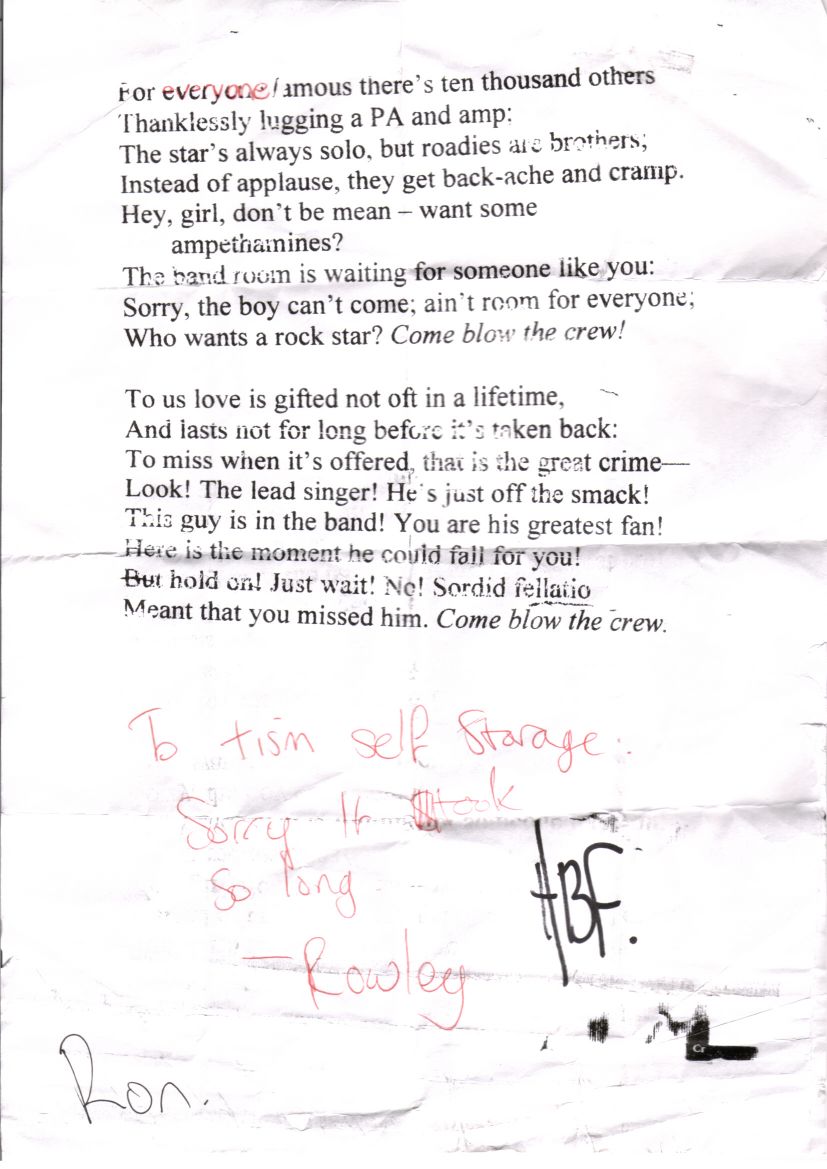 For everyone famous there's ten thousand others
Thanklessly lugging a PA and amp:
The star's always solo, but roadies are brothers;
Instead of applause, they get back-ache and cramp.
Hey, girl, don't be mean – want some
ampethamines?
The band room is waiting for someone like you:
Sorry, the boy can't come; ain't room for everyone;
Who wants a rock star? Come blow the crew!
To us love is gifted not oft in a lifetime,
And lasts not for long before it's taken back:
To miss when it's offered, that is the great crime—
Look! The lead singer! He's just off the smack!
This guy is in the band! You are his greatest fan!
Here is the moment he could fall for you!
But hold on! Just wait! No! Sordid fellatio
Meant that you missed him. Come blow the crew.
To tism self storage.
Sorry It took
so long
HBF.
—Rowley
Cr
Ron.